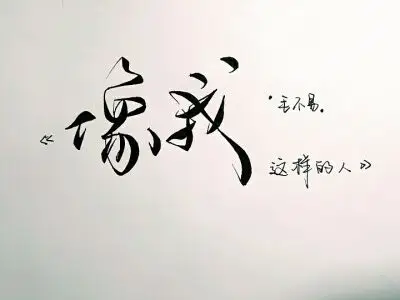 《像我
·毛不易。
这样的人》